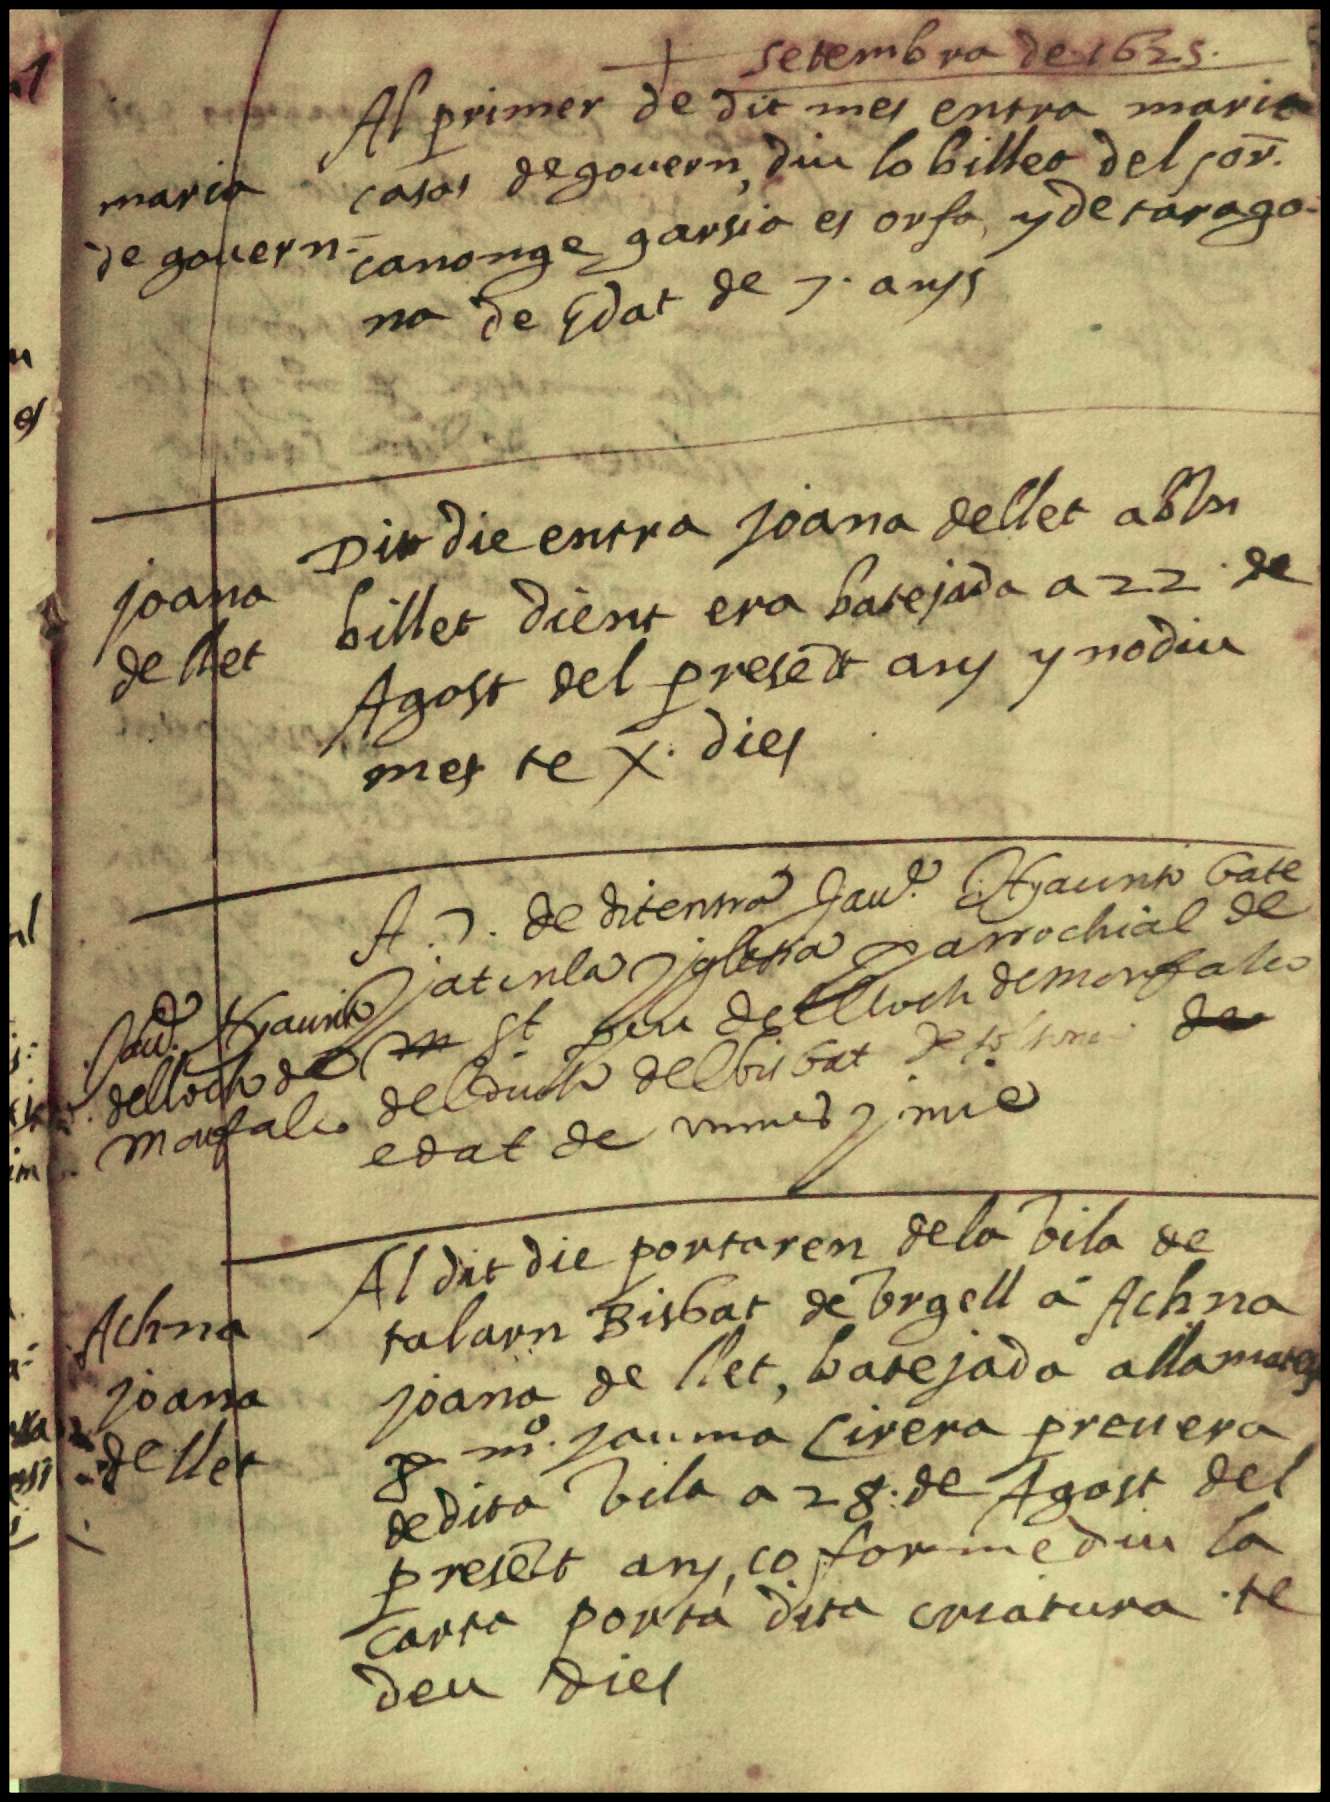 setembra de 1625.
Al primer de dit mes entra maria
casas de govern, diu lo billet del sor.
canonge garsia es orfa, y de tarago-
na de Edat de 7. anys
maria
de govern-
Dit die entra joana de llet ab hu
billet dient era batejada a 22. de
Agost del presēt any y no diu
mes te X. dies
joana
de llet
A. 7. de dit entra Jaud. Hyacinto bate
jat en la yglesia parrochial de
St pau del lloch de monfalco
del bisbat de
edat de mes y mig
Jaud. Hyacinto
del loch de
Monfalco
Al dit die portaren de la vila de
talarn Bisbat de Vrgell á Achna
joana de llet, batejada alla mateix
p mº. jauma Cirera prevera
de dita vila a 28. de Agost del
presēt any, cōforme diu la
carta porta dita criatura te
deu dies
Achna
joana
de llet